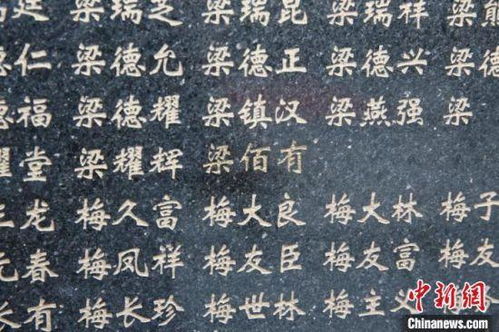 廷 梁瑞芝 梁瑞昆 梁瑞祥 梁
德仁 梁德允 梁德正 梁德兴 梁德
德福 梁德耀 梁镇汉 梁燕强 梁
耀堂 梁耀辉 梁佰有
龙 梅久富 梅大良 梅大林 梅子
元春 梅凤祥 梅友臣 梅友富 梅友
长有 梅长珍 梅世林 梅主义
中新网
Chinanews.com